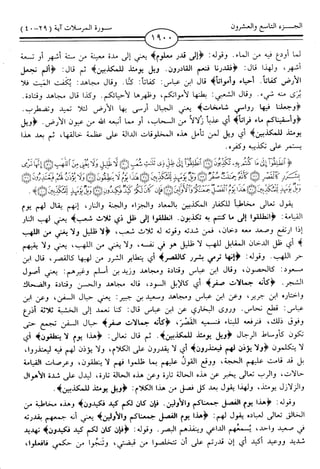 الجزء التاسع والعشرون
١٩٠٠
سورة المرسلات آية (٢٩-٤٠)
لما أودع فيه من الماء. وقوله: ﴿إلى قدر معلوم﴾ يعني إلى مدة معينة من ستة أشهر أو تسعة
أشهر، ولهذا قال: ﴿فقدرنا فنعم القادرون. ويل يومئذ للمكذبين﴾ ثم قال: ﴿ألم نجعل
الأرض كفاتاً. أحياء وأمواتاً﴾ قال ابن عباس: كفاتاً: كنا، وقال مجاهد: يكفت الميت فلا
يرى منه شيء. وقال الشعبي: بطنها لأمواتكم، وظهرها لأحيائكم. وكذا قال مجاهد وقتادة.
﴿وجعلنا فيها رواسي شامخات﴾ يعني الجبال أرسى بها الأرض لئلا تميد وتضطرب.
﴿وأسقيناكم ماء فراتاً﴾ أي عذباً زلالاً من السحاب، أو مما أنبعه الله من عيون الأرض. ﴿ويل
يومئذ للمكذبين﴾ أي ويل لمن تأمل هذه المخلوقات الدالة على عظمة خالقها، ثم بعد هذا
يستمر على تكذيبه وكفره.
يقول تعالى مخاطباً للكفار المكذبين بالمعاد والجزاء والجنة والنار، إنهم يقال لهم يوم
القيامة: ﴿انطلقوا إلى ما كنتم به تكذبون. انطلقوا إلى ظل ذي ثلاث شعب﴾ يعني لهب النار
إذا ارتفع وصعد معه دخان، فمن شدته وقوته له ثلاث شعب، ﴿لا ظليل ولا يغني من اللهب
﴾ أي ظل الدخان المقابل للهب لا ظليل هو في نفسه، ولا يغني من اللهب، يعني ولا يقيهم
حر اللهب. وقوله: ﴿إنها ترمي بشرر كالقصر﴾ أي يتطاير الشرر من لهبها كالقصر، قال ابن
مسعود: كالحصون، وقال ابن عباس وقتادة ومجاهد وزيد بن أسلم وغيرهم: يعني أصول
الشجر. ﴿كأنه جمالات صفر﴾ أي كالإبل السود، قاله مجاهد والحسن وقتادة والضحاك
واختاره ابن جرير، وعن ابن عباس ومجاهد وسعيد بن جبير: يعني حبال السفن، وعن ابن
عباس: قطع نحاس. وروى البخاري عن ابن عباس قال: كنا نعمد إلى الخشبة ثلاثة أذرع
وفوق ذلك، فنرفعه للبناء فنسميه القَصَر، ﴿كأنه جمالات صفر﴾ حبال السفن تجمع حتى
تكون كأوساط الرجال ﴿ويل يومئذ للمكذبين﴾. ثم قال تعالى: ﴿هذا يوم لا ينطقون﴾ أي
لا يتكلمون ﴿ولا يؤذن لهم فيعتذرون﴾ أي لا يقدرون على الكلام، ولا يؤذن لهم فيه ليعتذروا،
بل قد قامت عليهم الحجة، ووقع القول عليهم بما ظلموا فهم لا ينطقون، وعرصات القيامة
حالات، والرب تعالى يخبر عن هذه الحالة تارة وعن هذه الحالة تارة، ليدل على شدة الأهوال
والزلازل يومئذ. ولهذا يقول بعد كل فصل من هذا الكلام: ﴿ويل يومئذ للمكذبين﴾.
وقوله: ﴿هذا يوم الفصل جمعناكم والأولين. فإن كان لكم كيد فكيدون﴾ وهذه مخاطبة من
الخالق تعالى لعباده يقول لهم: ﴿هذا يوم الفصل جمعناكم والأولين﴾ يعني أنه جمعهم بقدرته
في صعيد واحد، يُسمعهم الداعي وينفذهم البصر. وقوله: ﴿فإن كان لكم كيد فكيدون﴾ تهديد
شديد ووعيد أكيد أي إن قدرتم على أن تتخلصوا من قبضتي، وتنجوا من حكمي فافعلوا،